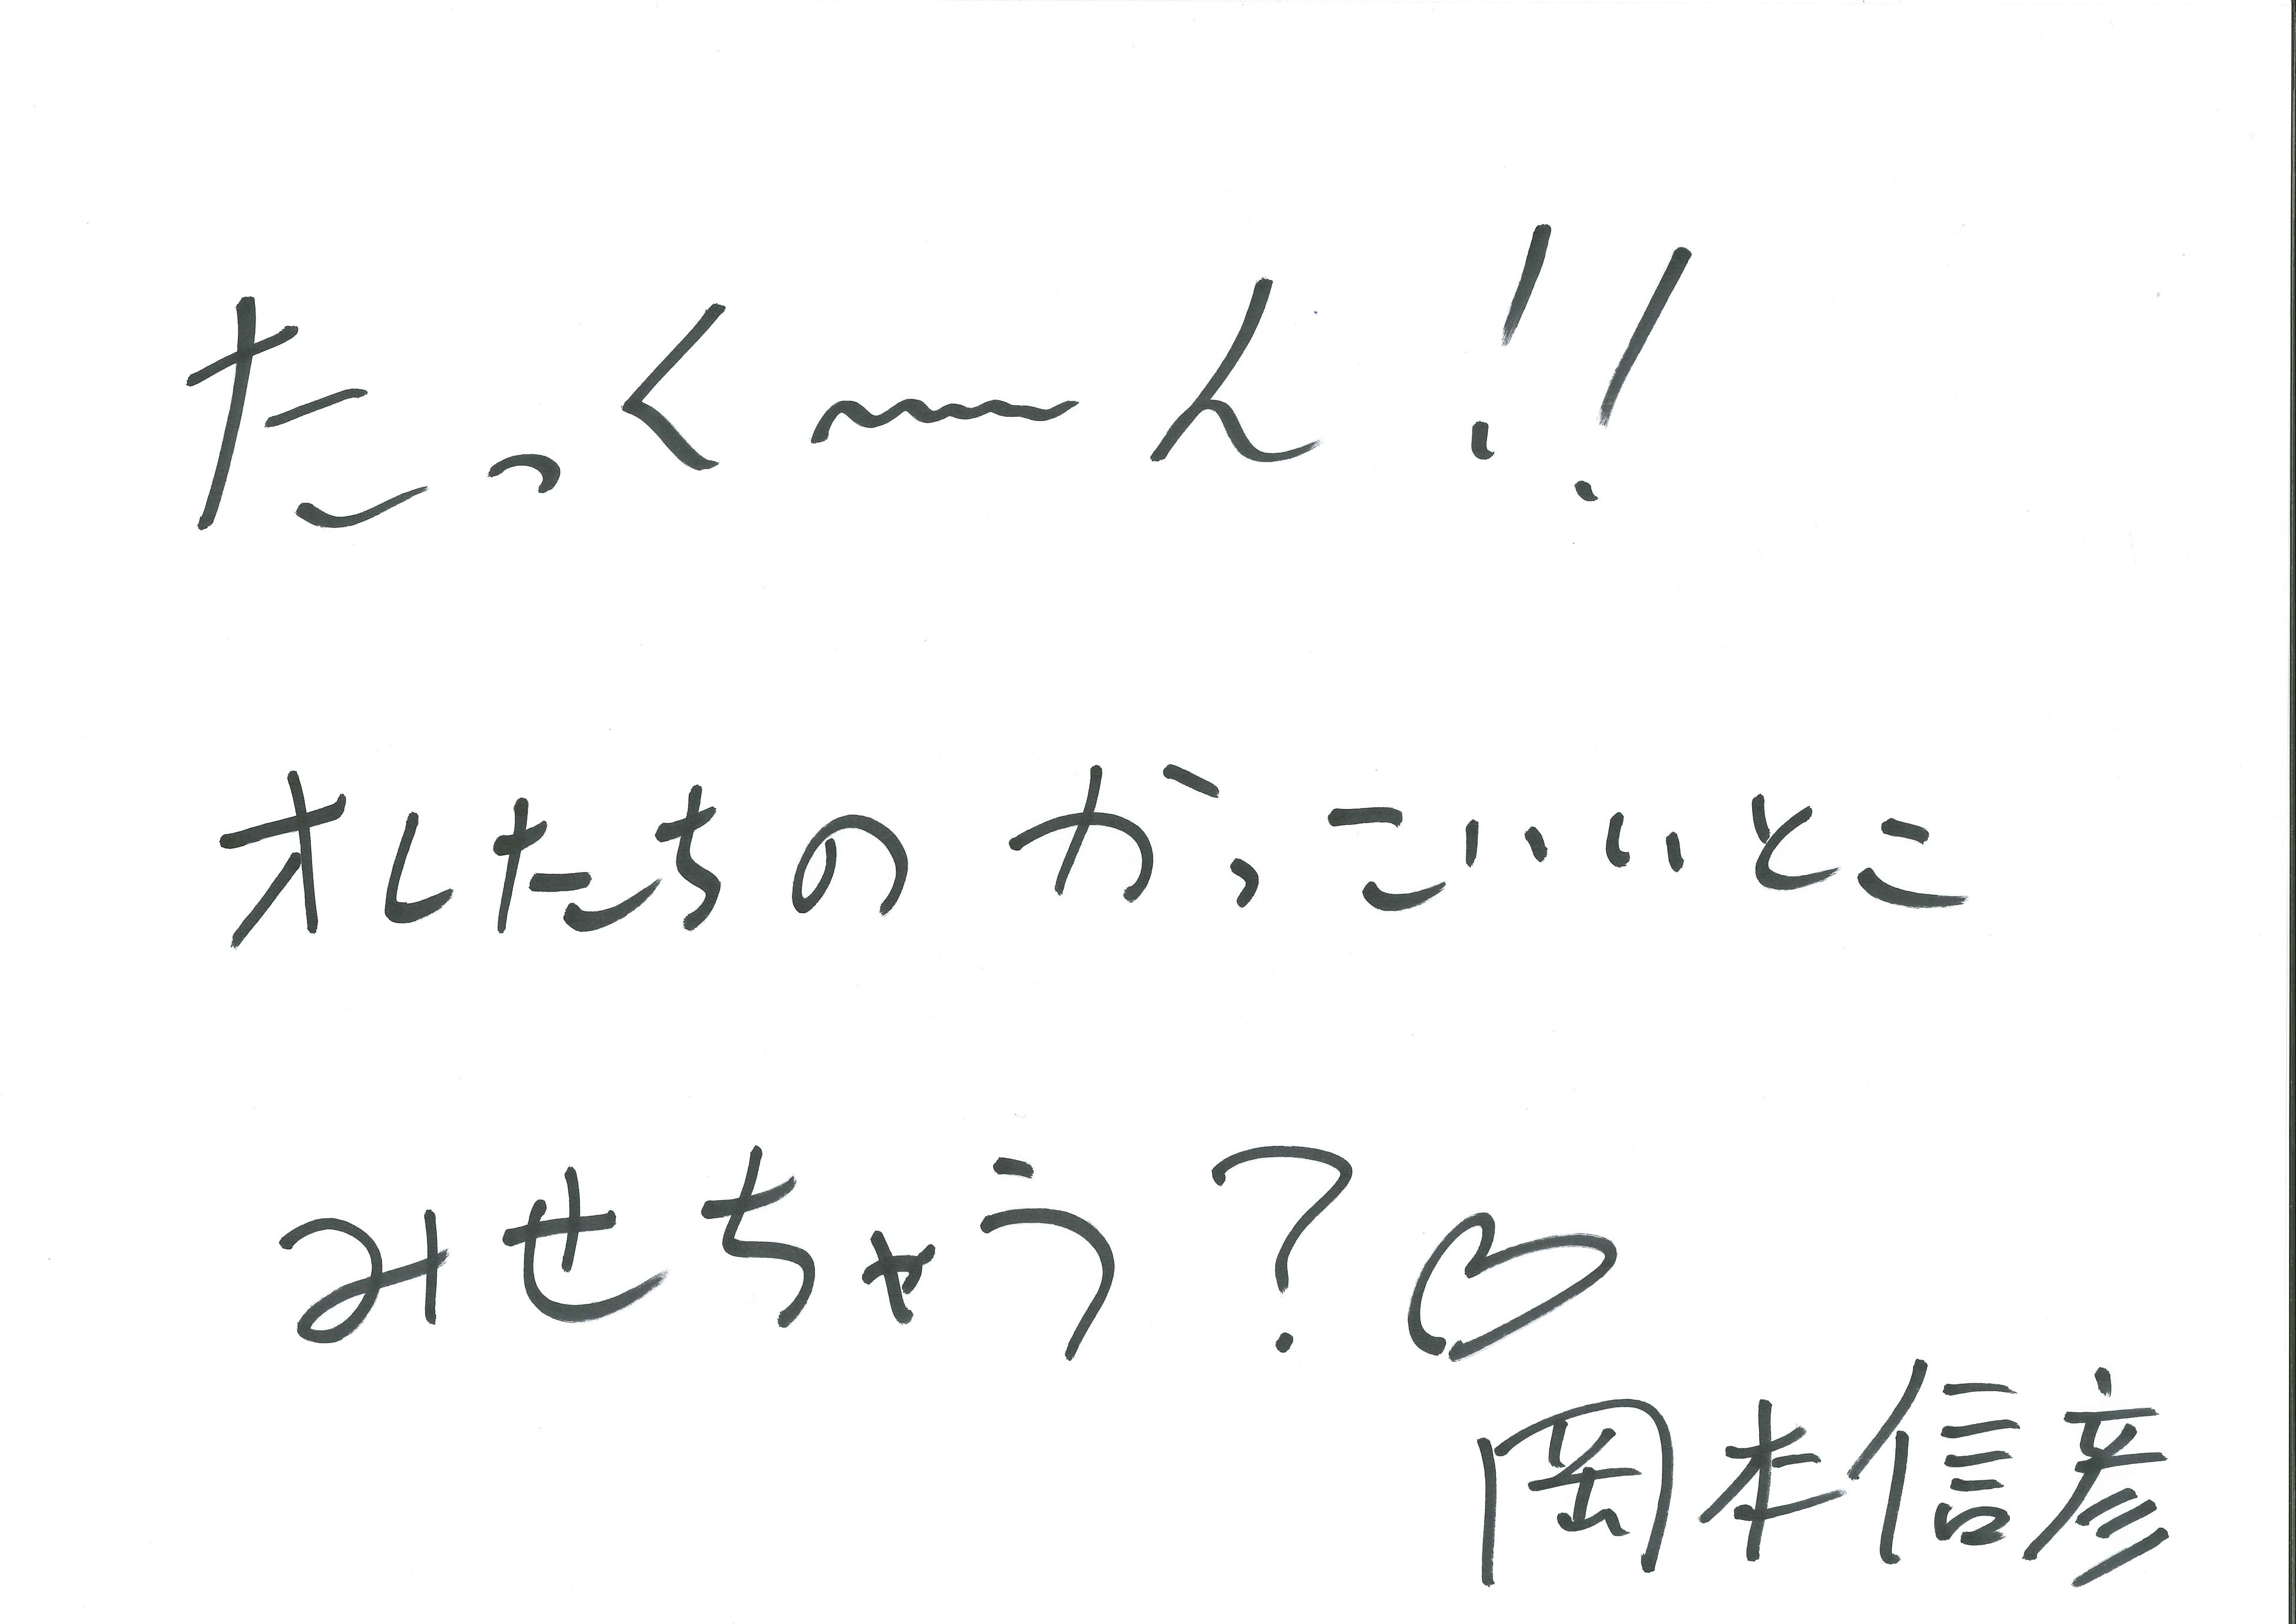 たっく〜〜ん!!
オレたちのかっこいいとこ
みせちゃう?♡
岡本信彦